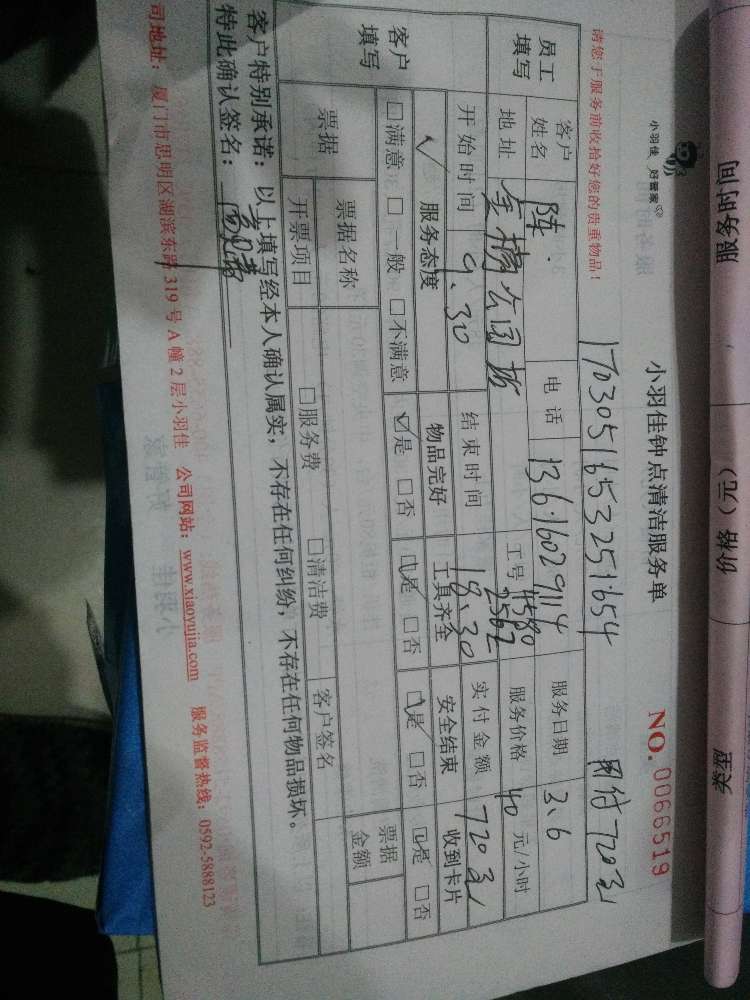 服务时间 价格（元） 类型
小羽佳 好管家
小羽佳钟点清洁服务单
NO. 0066519
请您于服务前收拾好您的贵重物品！
1703051653251654 用付720元
员工填写 客户姓名 陈 电话 13616029114 服务日期 3.6
地址 金榜公园 工号 4580 2562 服务价格 40 元/小时
开始时间 9.30 结束时间 18.30 实付金额 720元
客户填写 服务态度 物品完好 工具齐全 安全结束 收到卡片
☑满意 □一般 □不满意 ☑是 □否 ☑是 □否 ☑是 □否 ☑是 □否
票据 票据名称 客户签名 票据金额
开票项目 □服务费 □清洁费
客户特别承诺：以上填写经本人确认属实，不存在任何纠纷，不存在任何物品损坏。
特此确认签名：
司地址：厦门市思明区湖滨东路 319 号 A 幢 2 层小羽佳 公司网站：www.xiaoyujia.com 服务监督热线：0592-5888123